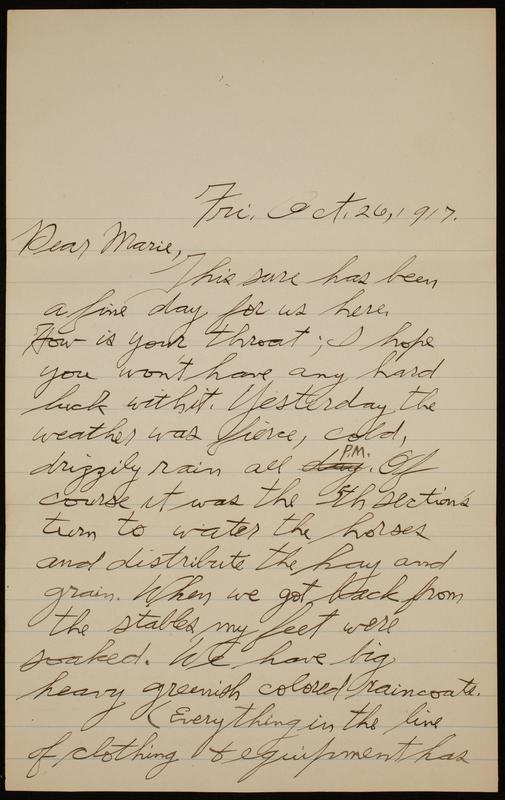 Fri. Oct. 26, 1917.
Dear Marie,
This sure has been
a fine day for us here.
How is your throat; I hope
you won't have any hard
luck with it. Yesterday the
weather was fierce, cold,
drizzily rain all day P.M. Of
course it was the 5th section's
turn to water the horses
and distribute the hay and
grain. When we got back from
the stables, my feet were
soaked. We have big
heavy greenish colored raincoats.
(Everything in the line
of clothing & equipment has